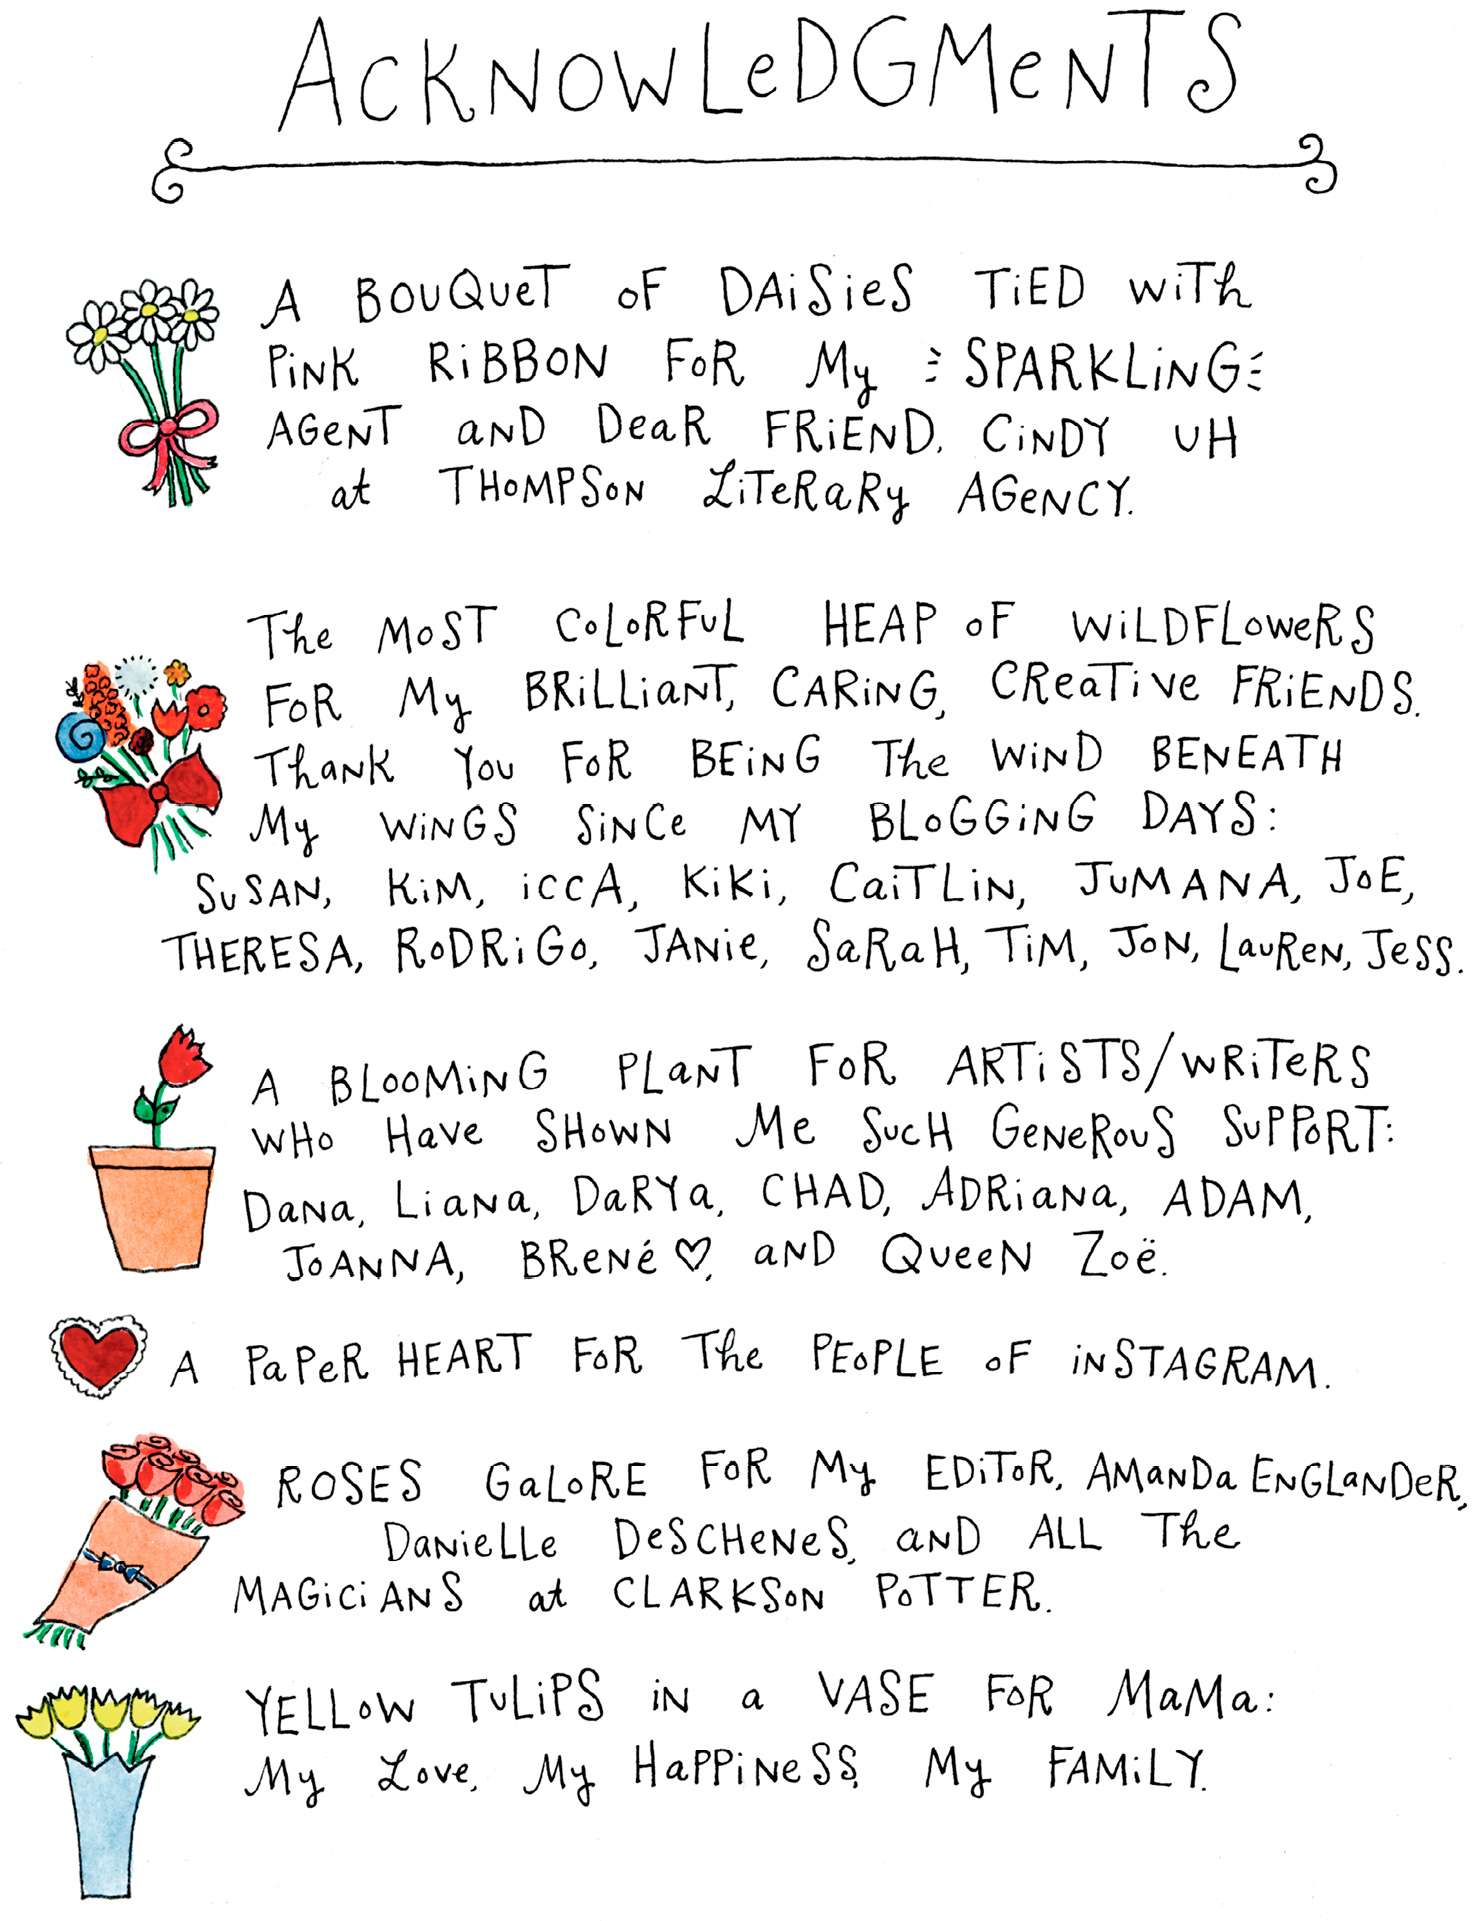 ACKNOWLeDGMeNTS
A BOUQUeT OF DAiSieS TiED WiTh
PiNK RiBBON FOR My SPARKLiNG
AGeNT aND DeaR FRiEND, CiNDY UH
at THOMPSON LiTeRaRy AGeNCY.
The MOST COLORFUL HEAP OF WiLDFLOWeRS
FOR My BRiLLiaNT, CARiNG, CReaTiVe FRiENDS.
ThaNK YOU FOR BEiNG The WiND BENEATH
My WiNGS SiNCe MY BLOGGiNG DAYS:
SUSAN, KiM, iCCA, KiKi, CaiTLiN, JUMANA, JOE,
THERESA, RODRiGO, JANie, SaRaH, TiM, JON, LauReN, JeSS.
A BLOOMiNG PLaNT FOR ARTiSTS/WRiTeRS
WHO HaVe SHOWN Me SUCH GeNeROUS SUPPORT:
DaNa, LiaNa, DaRYa, CHAD, ADRiaNa, ADAM,
JOANNA, BReNé ♡, aND QUeeN ZOë.
A PaPeR HEART FOR The PEOPLE OF iNSTAGRAM.
ROSES GaLORE FOR My EDiTOR, AMaNDa ENGLaNDeR,
DaNieLLe DeSCHeNeS, aND ALL The
MAGiCiANS at CLARKSON POTTER.
YELLOW TULiPS iN a VASE FOR MaMa:
My LOve, My HaPPiNeSS, My FAMiLY.